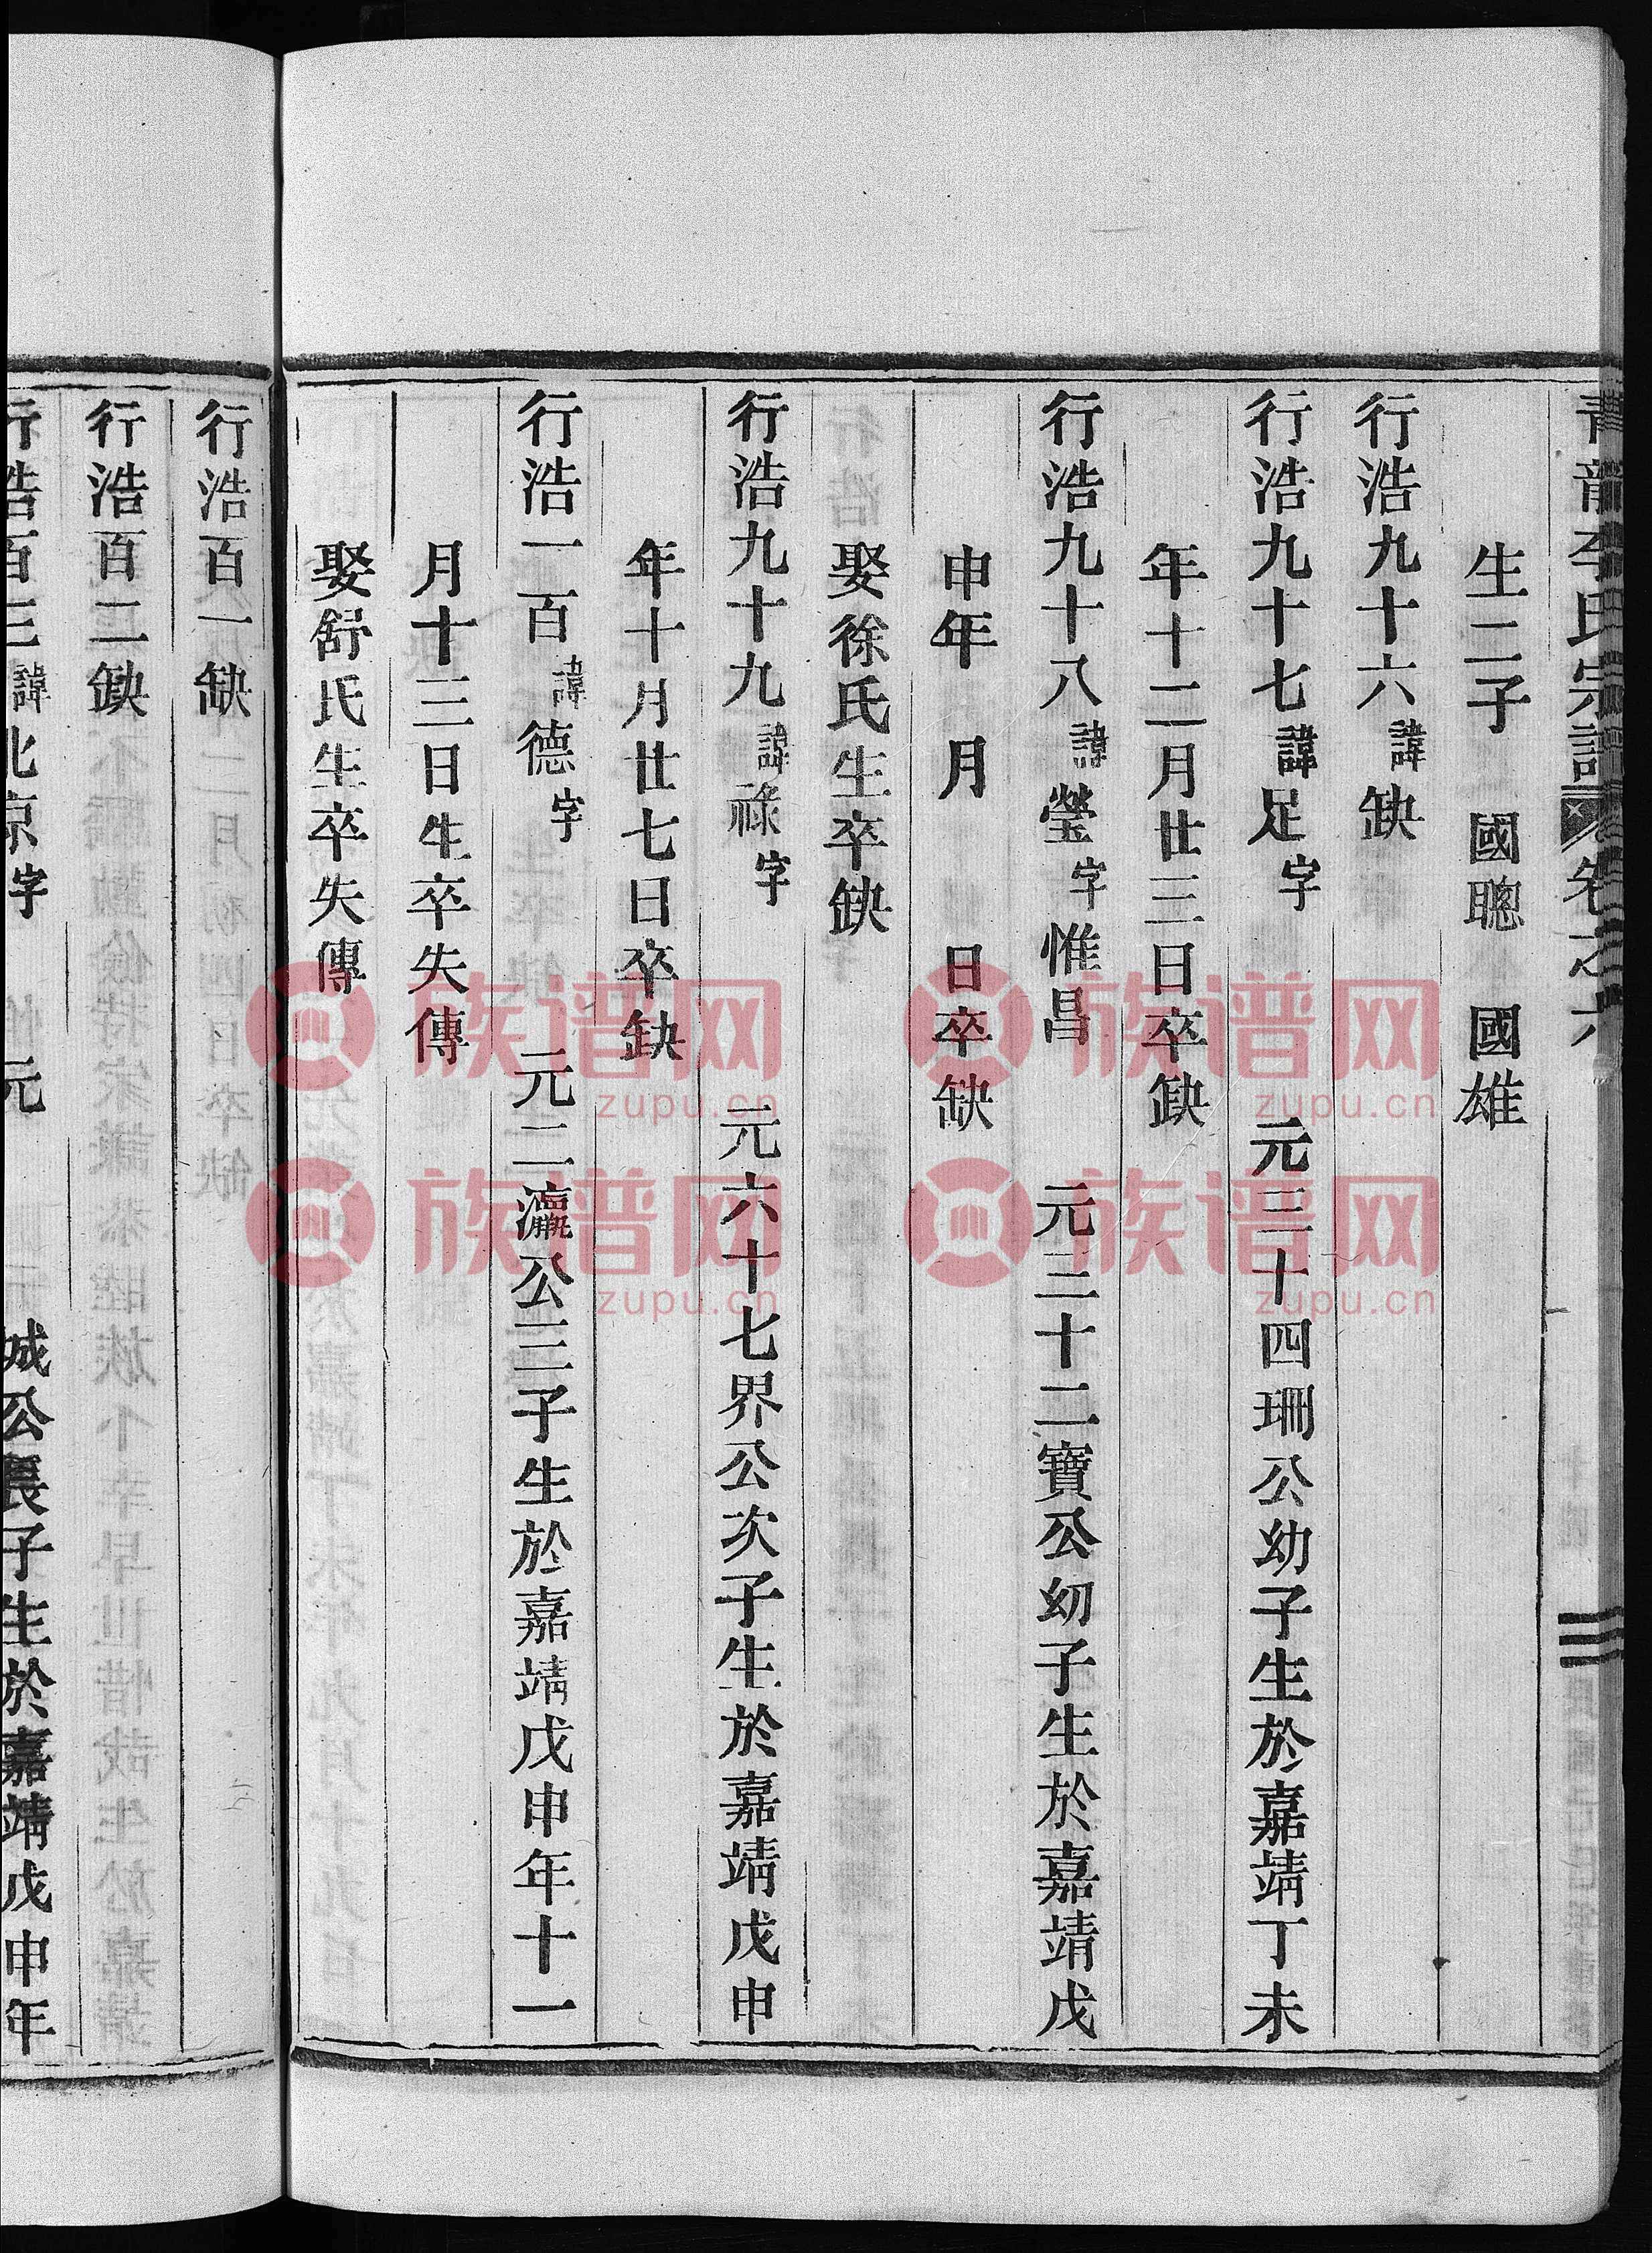 青龍李氏宗譜 卷之六
生二子 國聰 國雄
行浩九十六諱缺
行浩九十七諱足字 元三十四珊公幼子生於嘉靖丁未
年十二月廿三日卒缺
行浩九十八諱瑩字惟昌 元三十二寶公幼子生於嘉靖戊
申年 月 日卒缺
娶徐氏生卒缺
行浩九十九諱祿字 元六十七界公次子生於嘉靖戊申
年十月廿七日卒缺
行浩一百諱德字 元二瀛公三子生於嘉靖戊申年十一
月十三日生卒失傳
娶舒氏生卒失傳
行浩百一缺
行浩百二缺
行浩百三諱北京字 元 城公長子生於嘉靖戊申年
族谱网
zupu.cn
族谱网
zupu.cn
族谱网
zupu.cn
族谱网
zupu.cn